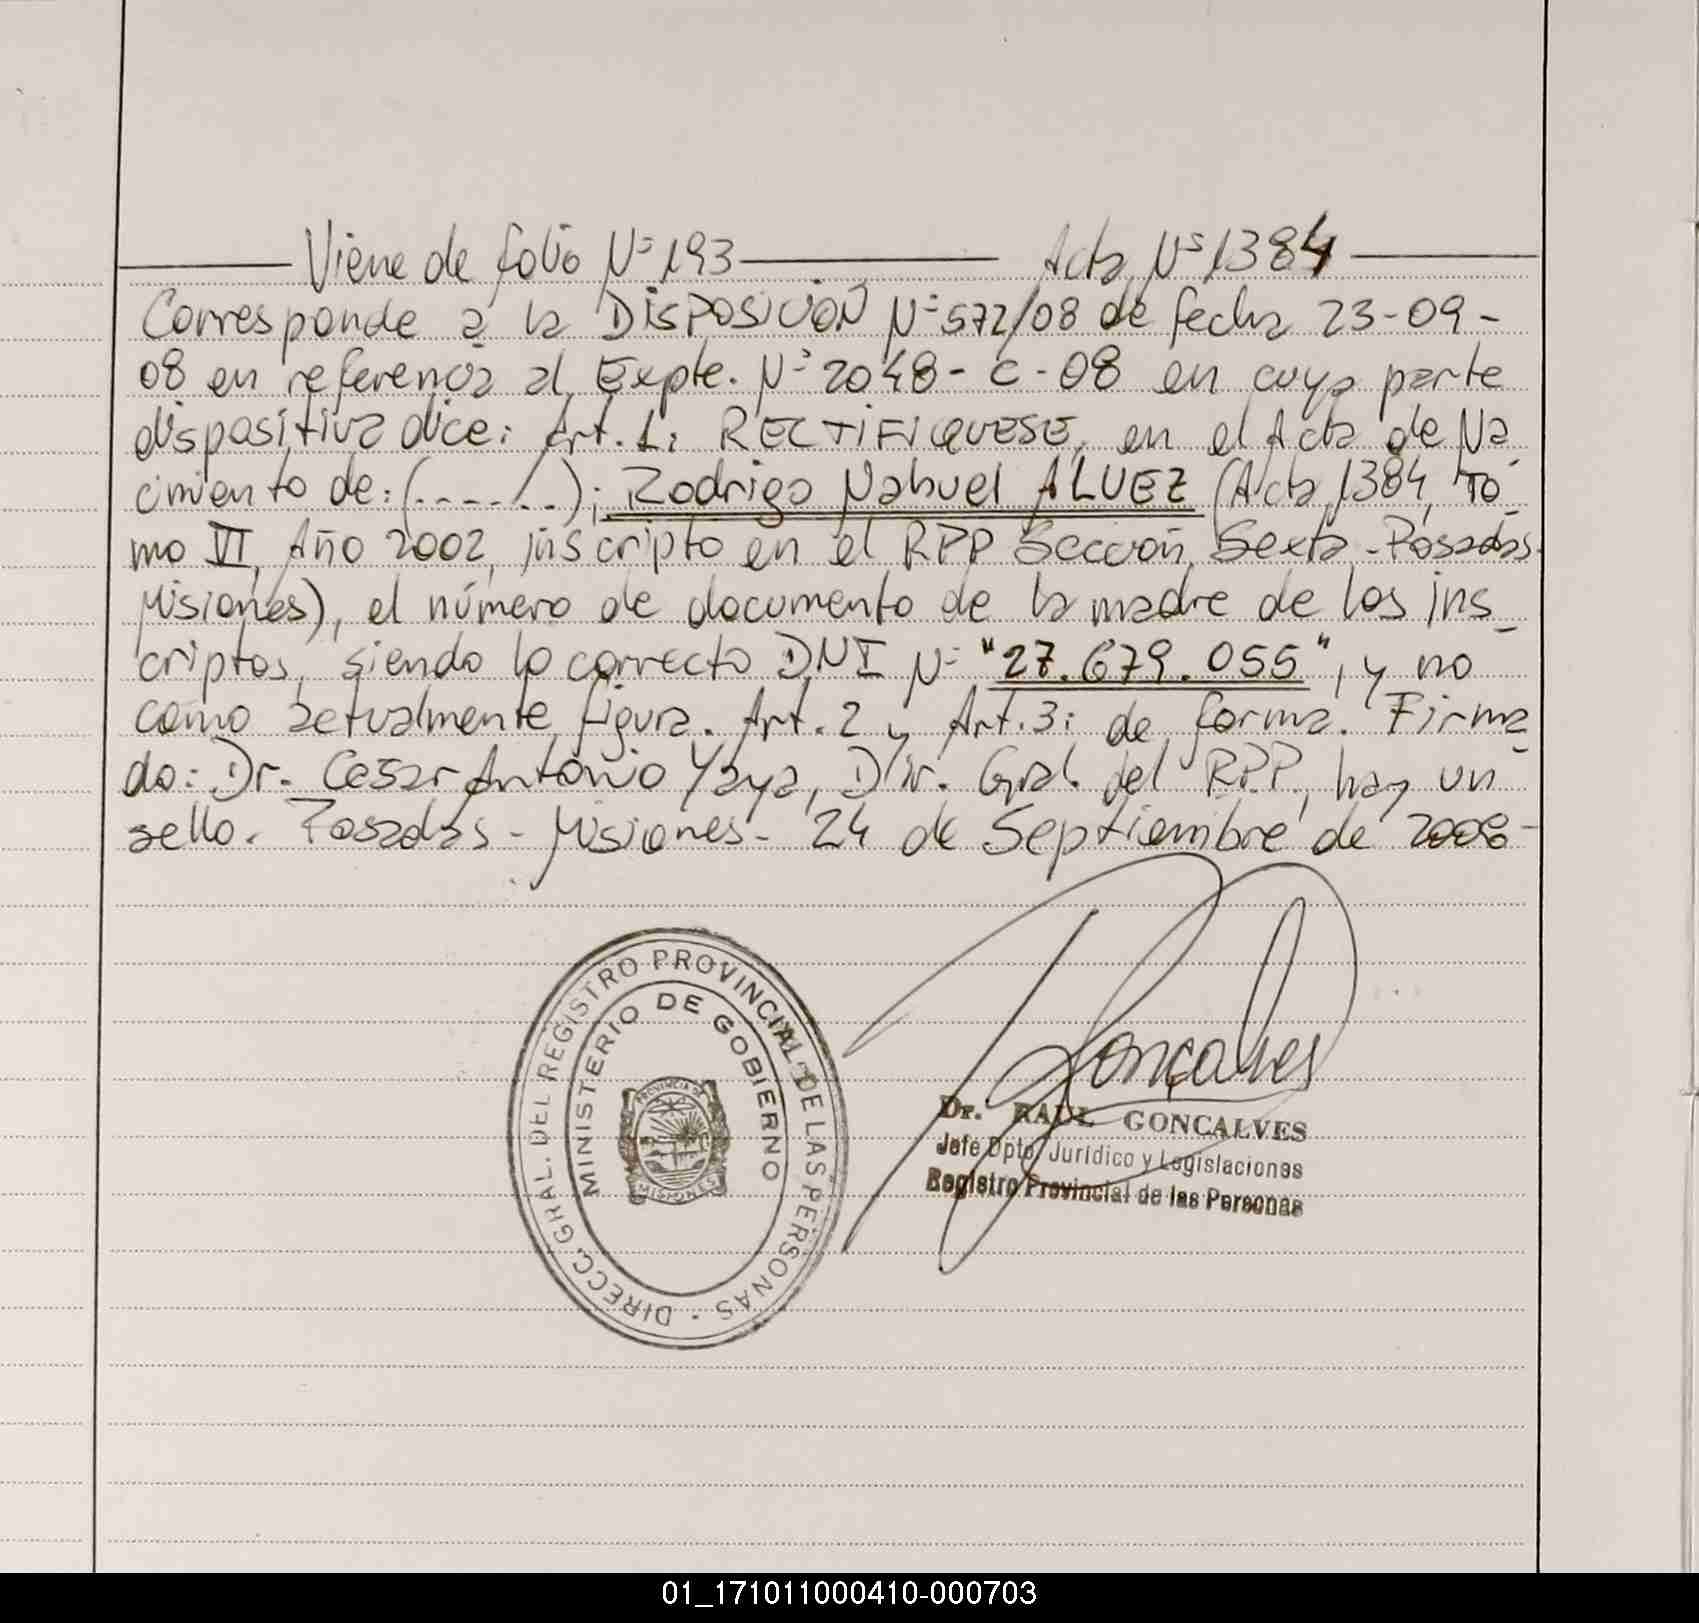 Viene de folio Nº 193 Acta Nº 1384
Corresponde a la DISPOSICIÓN Nº 572/08 de fecha 23-09-
08 en referencia al Expte. Nº 2048-C-08 en cuya parte
dispositiva dice: Art. 1: RECTIFIQUESE, en el Acta de Na
cimiento de: (......); Rodrigo Nahuel ALVEZ (Acta 1384, To
mo VI, Año 2002, inscripto en el RPP Sección Sexta-Posadas
Misiones), el número de documento de la madre de los ins
criptos, siendo lo correcto DNI Nº "27.679.055", y no
como actualmente figura. Art. 2 y Art. 3: de forma. Firma
do: Dr. Cesar Antonio Yaya, Dir. Gral. del RPP, hay un
sello. Posadas - Misiones - 24 de Septiembre de 2008-
DIRECC. GRAL. DEL REGISTRO PROVINCIAL DE LAS PERSONAS
MINISTERIO DE GOBIERNO
PROVINCIA DE
MISIONES
Gonçalves
Dr. RAUL GONCALVES
Jefe Dpto. Jurídico y Legislaciones
Registro Provincial de las Personas
01_171011000410-000703